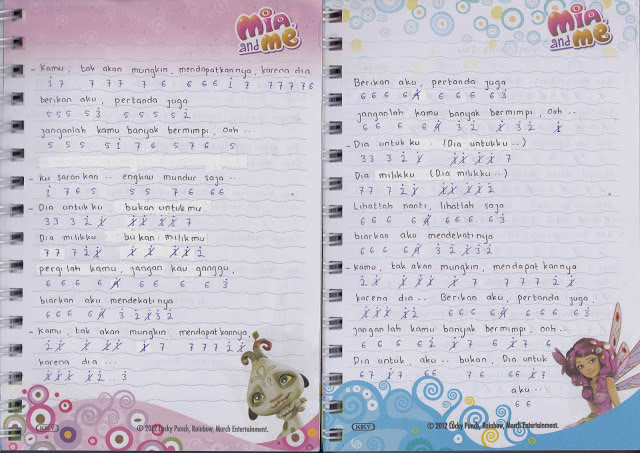 Mia and me
- Kamu, tak akan mungkin, mendapatkannya, karena dia
1̇ 7 7 7 7 7 6 6 6 6 1̇ 7 7 7 7 7 6
berikan aku, pertanda juga
5 5 5 5 3̇ 5 5 5 5 2̇
janganlah kamu banyak bermimpi, Ooh..
5 5 5 5 1̇ 7 6 5 7 6 5
- Ku sarankan .. engkau mundur saja ...
1̇ 7 6 5 5 5 7 6 6 6
- Dia untukku bukan untukmu
3 3 3 2̇
Dia milikku bukan milikmu
7 7 7 2̇
pergilah kamu, jangan kau ganggu,
6 6 6 6 6 6 6 3̇
biarkan aku mendekatinya
6 6 6 6
- Kamu, tak akan mungkin, mendapatkannya,
karena dia ...
KIKY
© 2012 Lucky Punch, Rainbow, March Entertainment.
Mia and me
Berikan aku, pertanda juga
6 6 6 6 6 6 6 6 3̇
janganlah kamu banyak bermimpi, Ooh ..
- Dia untukku (Dia untukku..)
3 3 3 2̇
Dia milikku (Dia milikku ..)
7 7 7 2̇
Lihatlah nanti, lihatlah saja
6 6 6 6 6 6 6 6 3̇
biarkan aku mendekatinya
6 6 6 6
- Kamu, tak akan mungkin, mendapatkannya
karena dia .. Berikan aku, pertanda juga,
janganlah kamu banyak bermimpi, Ooh..
Dia untuk, aku .. bukan, Dia untuk
aku ...
6 6
KIKY
© 2012 Lucky Punch, Rainbow, March Entertainment.